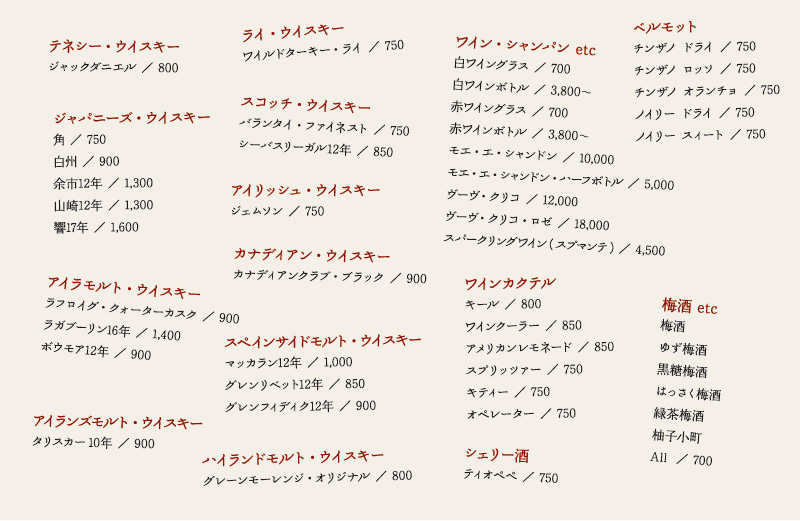 テネシー・ウイスキー
ジャックダニエル ／ 800
ジャパニーズ・ウイスキー
角 ／ 750
白州 ／ 900
余市12年 ／ 1,300
山崎12年 ／ 1,300
響17年 ／ 1,600
アイラモルト・ウイスキー
ラフロイグ・クォーターカスク ／ 900
ラガブーリン16年 ／ 1,400
ボウモア12年 ／ 900
アイランズモルト・ウイスキー
タリスカー 10年 ／ 900
ライ・ウイスキー
ワイルドターキー・ライ ／ 750
スコッチ・ウイスキー
バランタイ・ファイネスト ／ 750
シーバスリーガル12年 ／ 850
アイリッシュ・ウイスキー
ジェムソン ／ 750
カナディアン・ウイスキー
カナディアンクラブ・ブラック ／ 900
スペインサイドモルト・ウイスキー
マッカラン12年 ／ 1,000
グレンリベット12年 ／ 850
グレンフィディク12年 ／ 900
ハイランドモルト・ウイスキー
グレーンモーレンジ・オリジナル ／ 800
ワイン・シャンパン etc
白ワイングラス ／ 700
白ワインボトル ／ 3,800〜
赤ワイングラス ／ 700
赤ワインボトル ／ 3,800〜
モエ・エ・シャンドン ／ 10,000
モエ・エ・シャンドン・ハーフボトル ／ 5,000
ヴーヴ・クリコ ／ 12,000
ヴーヴ・クリコ・ロゼ ／ 18,000
スパークリングワイン（スプマンテ）／ 4,500
ワインカクテル
キール ／ 800
ワインクーラー ／ 850
アメリカンレモネード ／ 850
スプリッツァー ／ 750
キティー ／ 750
オペレーター ／ 750
シェリー酒
ティオペペ ／ 750
ベルモット
チンザノ ドライ ／ 750
チンザノ ロッソ ／ 750
チンザノ オランチョ ／ 750
ノイリー ドライ ／ 750
ノイリー スィート ／ 750
梅酒 etc
梅酒
ゆず梅酒
黒糖梅酒
はっさく梅酒
緑茶梅酒
柚子小町
All ／ 700